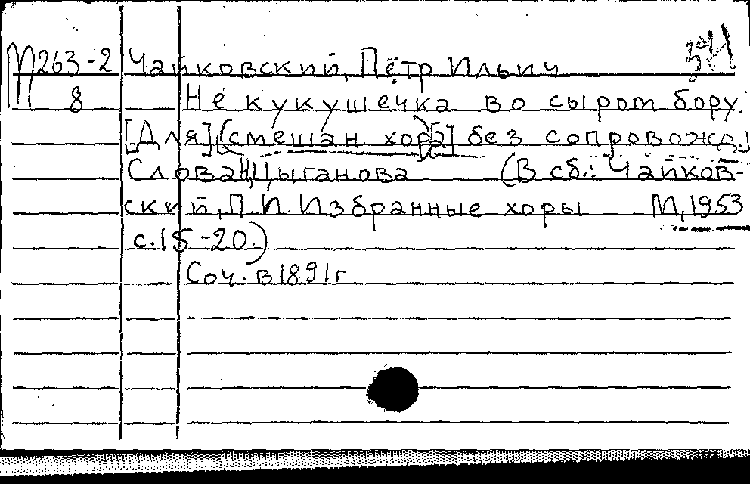 М263-2 Чайковский, Пётр Ильич
8 Не кукушечка во сыром бору.
[Для] (смешан хор)[а] без сопровожд.
Слова Н.Цыганова (В сб.: Чайков-
ский, П.И. Избранные хоры М, 1953
с.15-20.)
Соч. в 1891г